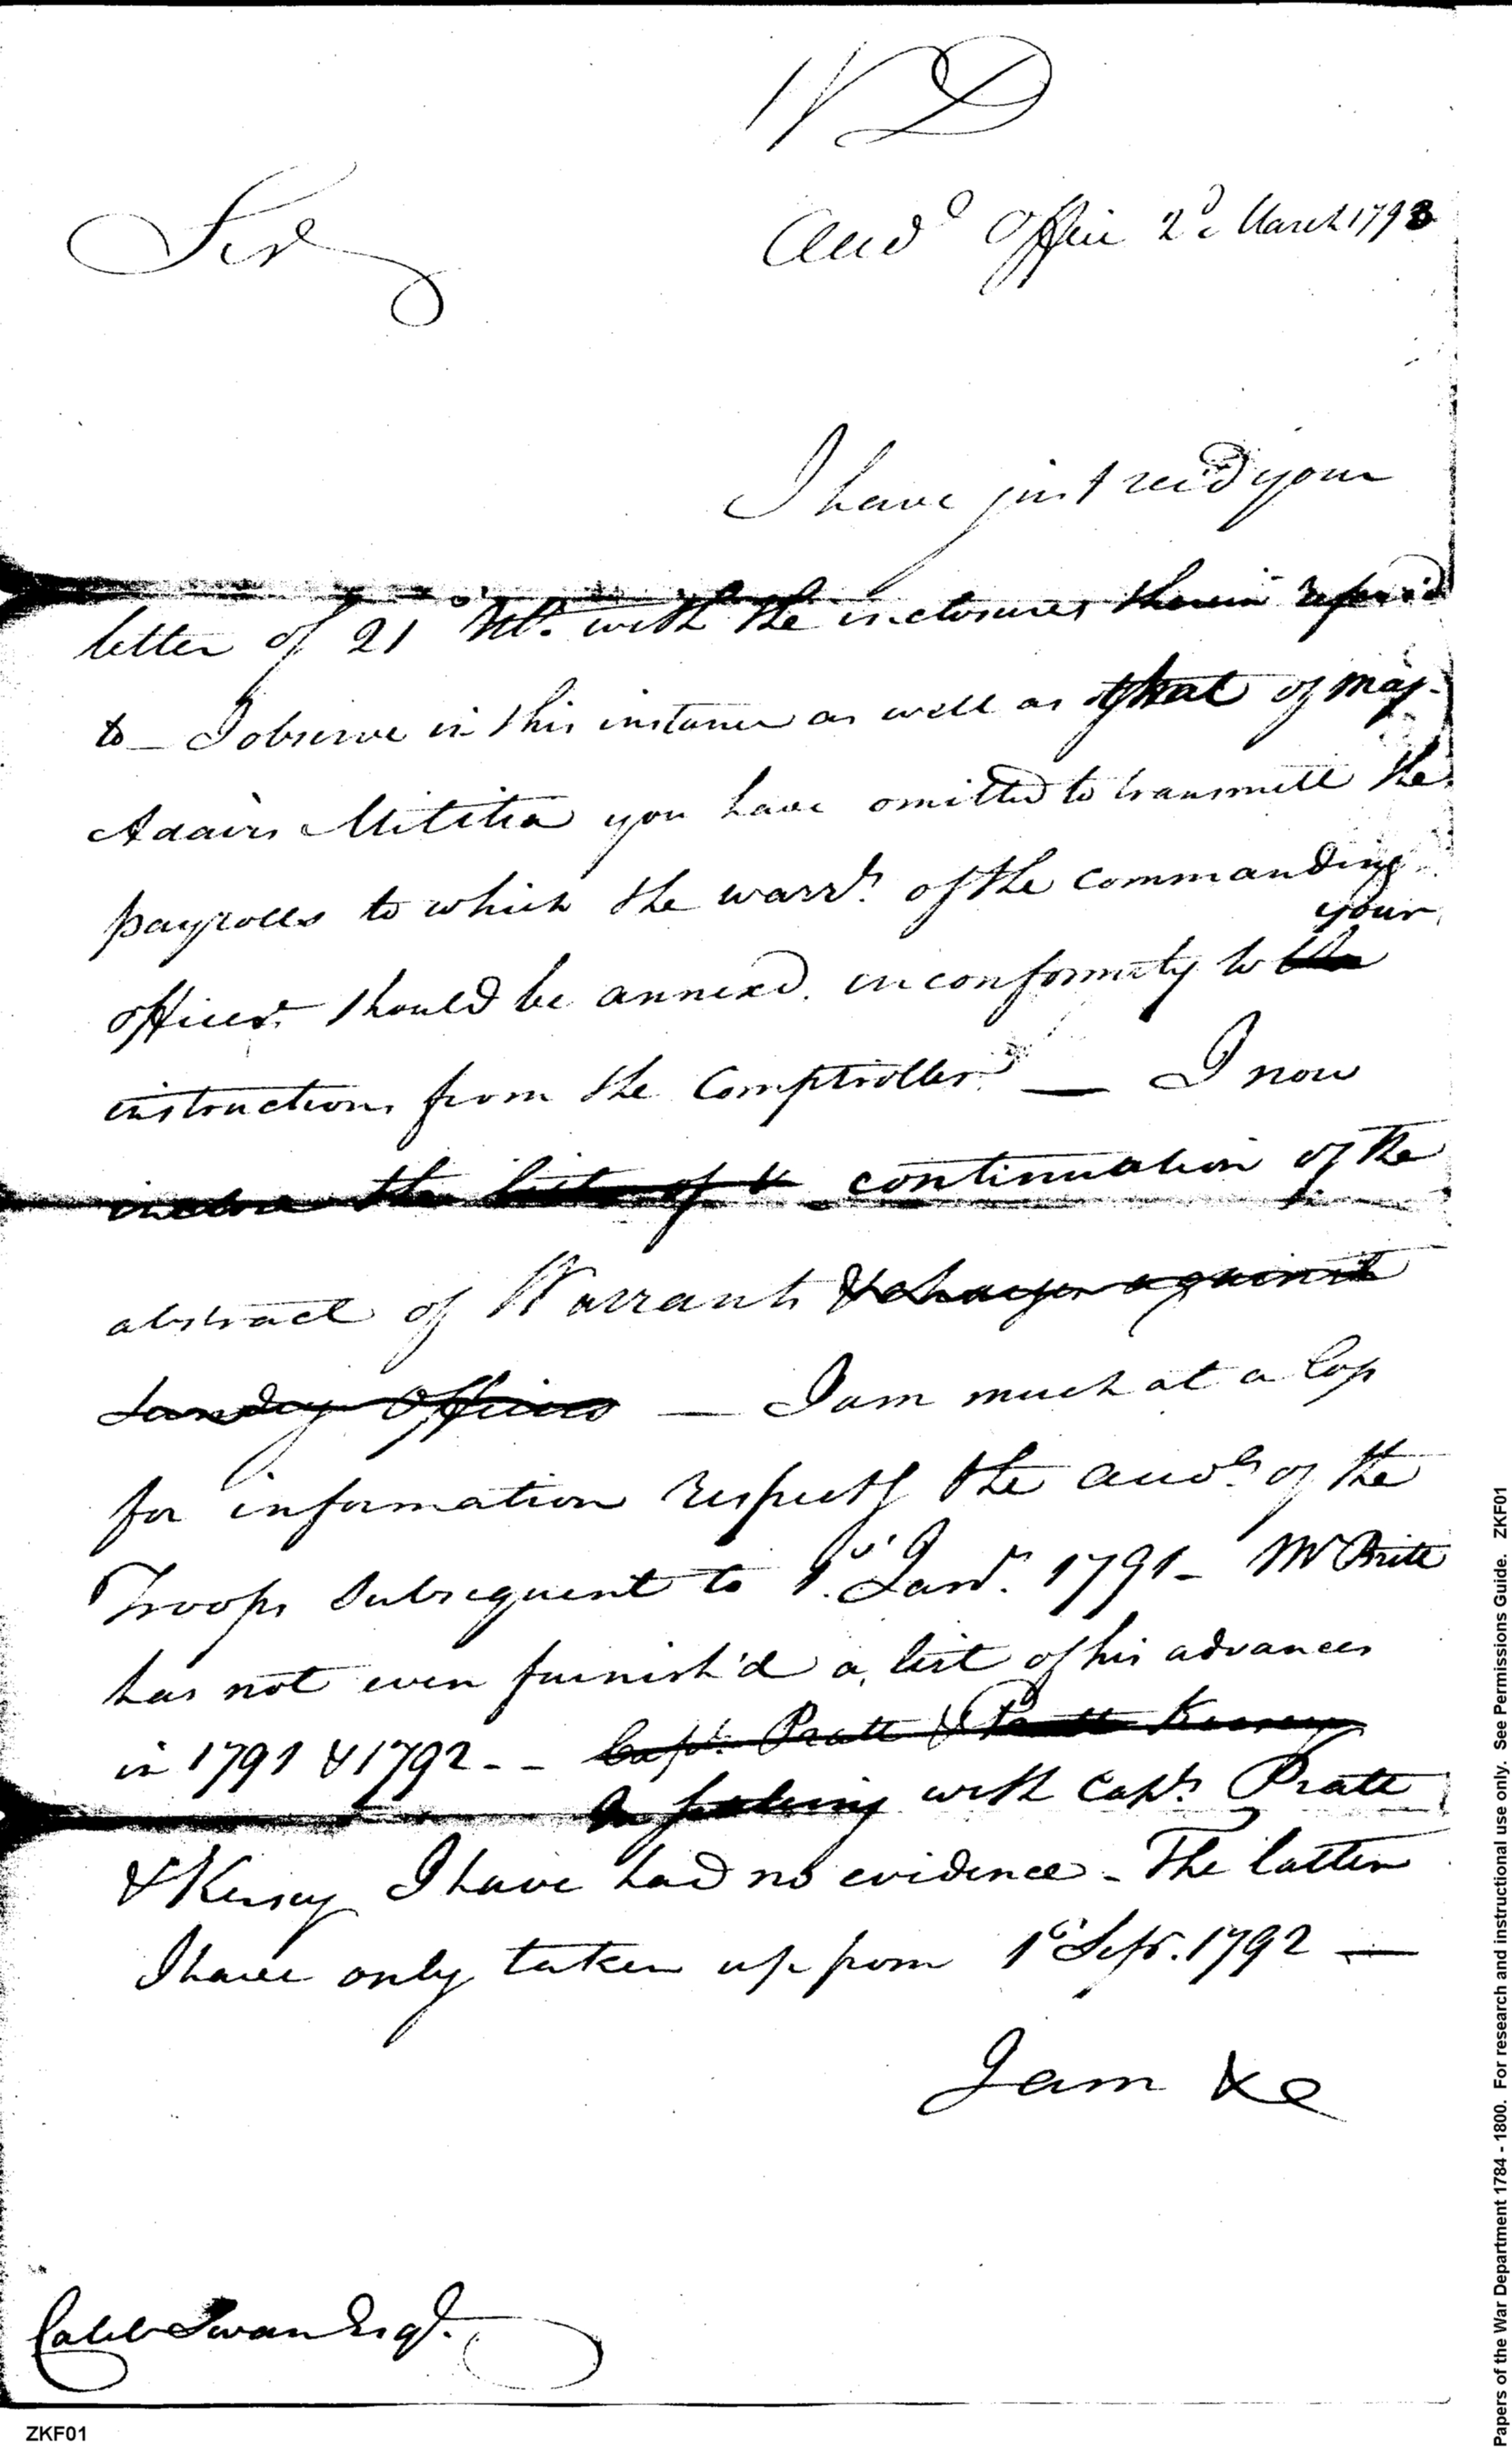 WD
Sir
Accd Office 2d March 1793
I have just rec'd your
letter of 21 Ult. with the inclosures therein referr'd
to _ I observe in this instance as well as that of Maj.
Adairs Militia you have omitted to transmitt the
payrolls to which the warrts. of the commanding
your
officer should be annex'd. in conformity to the
instructions from the Comptroller. — I now
inclose the list of & continuation of the
abstract of Warrants & charges against
Sundry Officers — I am much at a loss
for information respectg the accots. of the
Troops subsequent to 1st. Jany. 1791 - Mr Britt
has not even furnish'd a list of his advances
in 1791 & 1792 - - Capt. Pratt & Kersey
with Capts. Pratt
& Kersey I have had no evidence - The latter
I have only taken up from 1st Sepr. 1792 —
I am &c
Caleb Swan Esqr.
ZKF01
Papers of the War Department 1784 - 1800. For research and instructional use only. See Permissions Guide. ZKF01